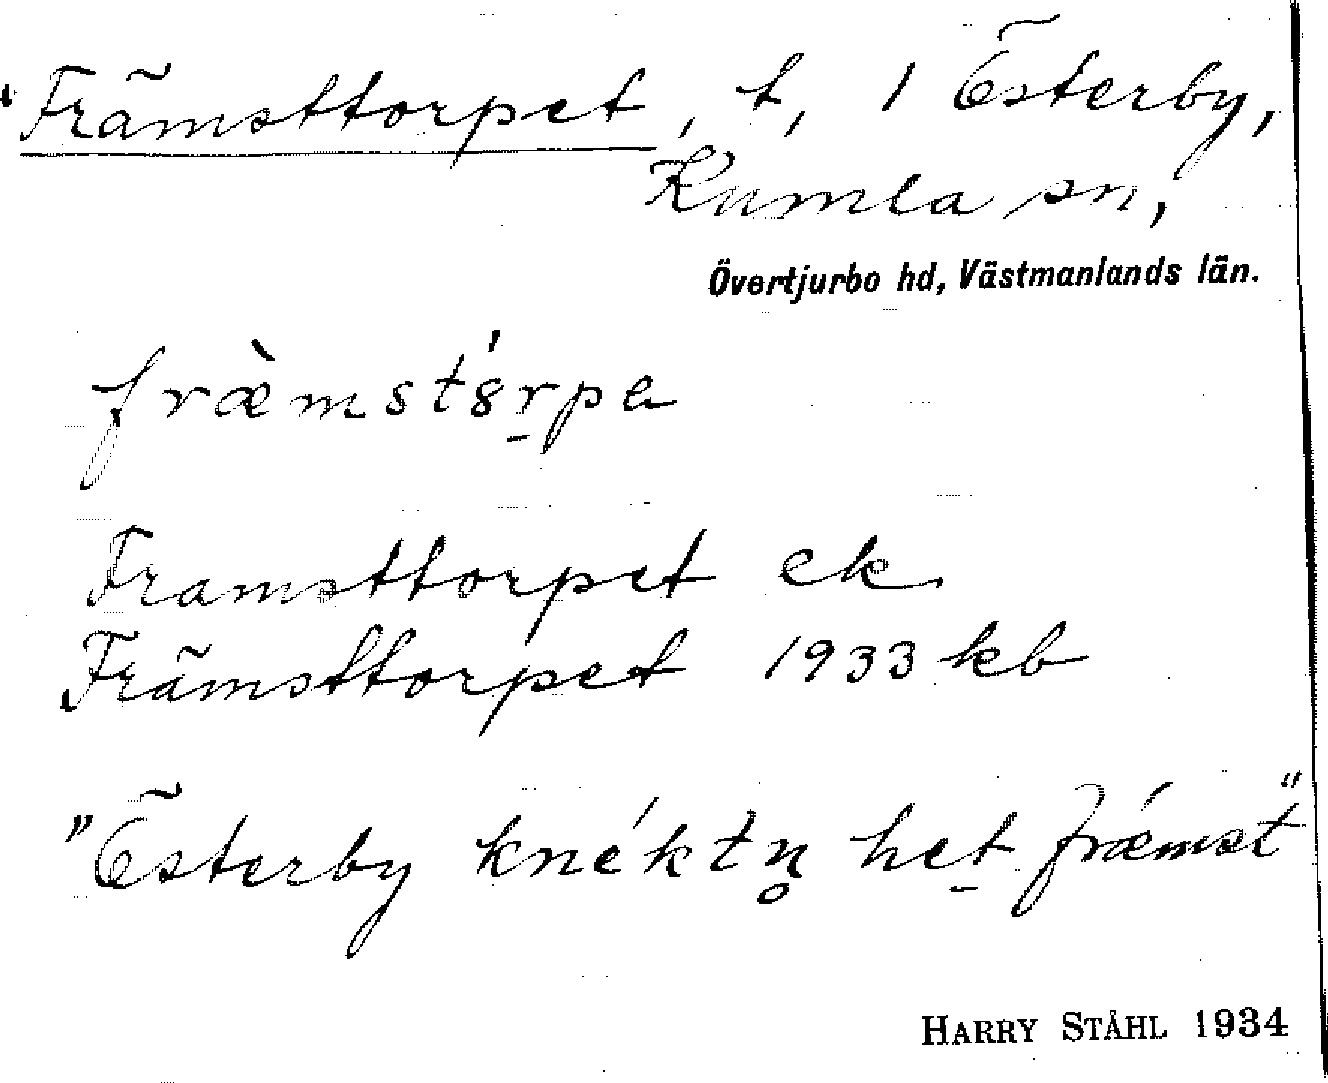 Främsttorpet, t, 1 Österby,
Kumla sn,
Övertjurbo hd, Västmanlands län.
fræ̀mstʹ8r̠pe
Framsttorpet ek.
Främsttorpet 1933 kb
"Österby knéktn̥ het̠ frǽmst"
HARRY STÅHL 1934